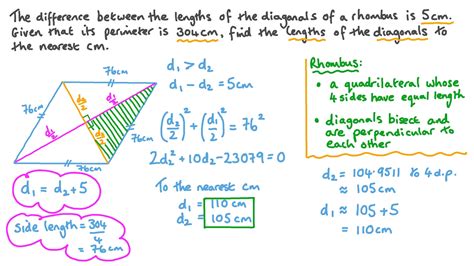 The difference between the lengths of the diagonals of a rhombus is 5cm.
Given that its perimeter is 304cm, find the lengths of the diagonals to
the nearest cm.
76cm
76cm
76cm
76cm
d₁/2
d₂/2
d₁ = d₂ + 5
side length = 304/4
= 76cm
d₁ > d₂
d₁ - d₂ = 5cm
(d₂/2)² + (d₁/2)² = 76²
2d₂² + 10d₂ - 23079 = 0
To the nearest cm
d₁ = 110cm
d₂ = 105cm
Rhombus:
• a quadrilateral whose
4 sides have equal length
• diagonals bisect and
are perpendicular to
each other
d₂ = 104.9511 to 4 d.p.
≈ 105cm
d₁ ≈ 105 + 5
= 110cm